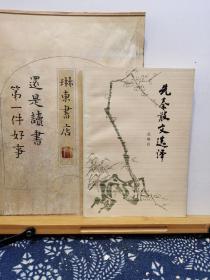 琳東书店
還是讀書
第一件好事
先秦散文选译